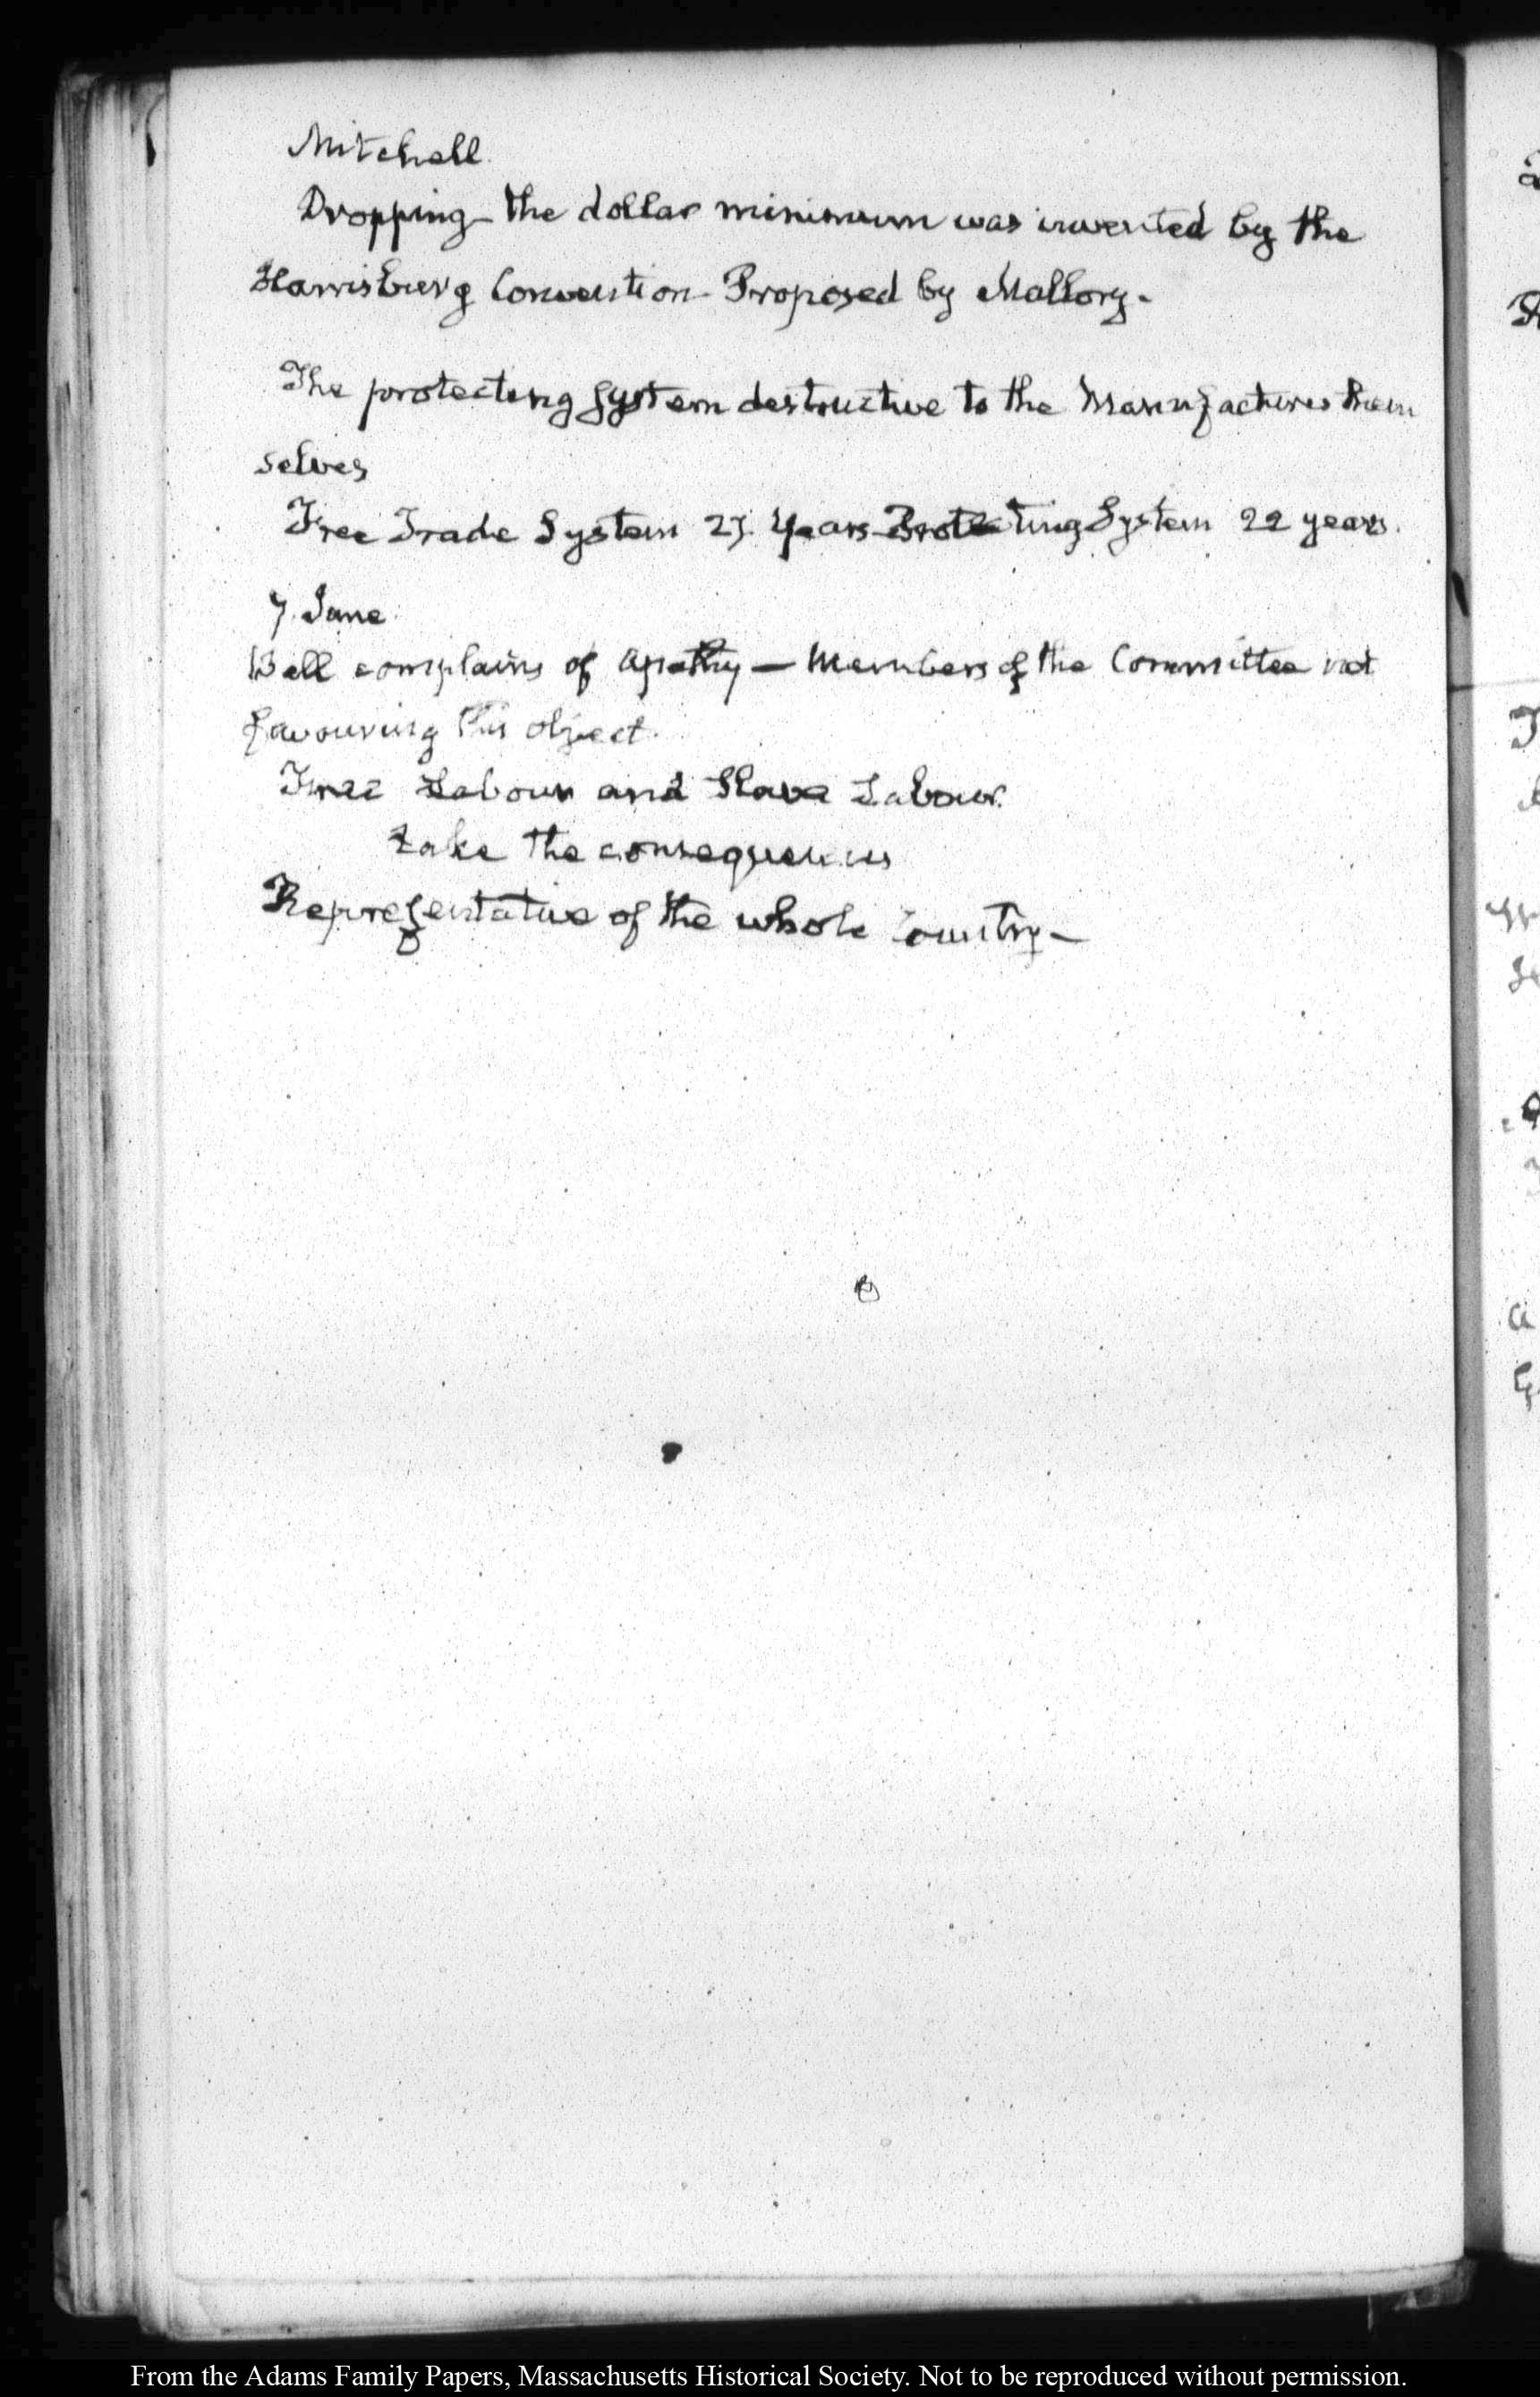 Mitchell.
Dropping - the dollar minimum was invented by the
Harrisburg Convention - Proposed by Mallory -
The protecting System destructive to the Manufactures them
selves
Free Trade System 27. Years - Protecting System 22 years.
7. June
Bell complains of apathy — Members of the Committee not
favouring his object.
Free Labour and Slave Labour.
take the consequences
Representative of the whole Country —
From the Adams Family Papers, Massachusetts Historical Society. Not to be reproduced without permission.